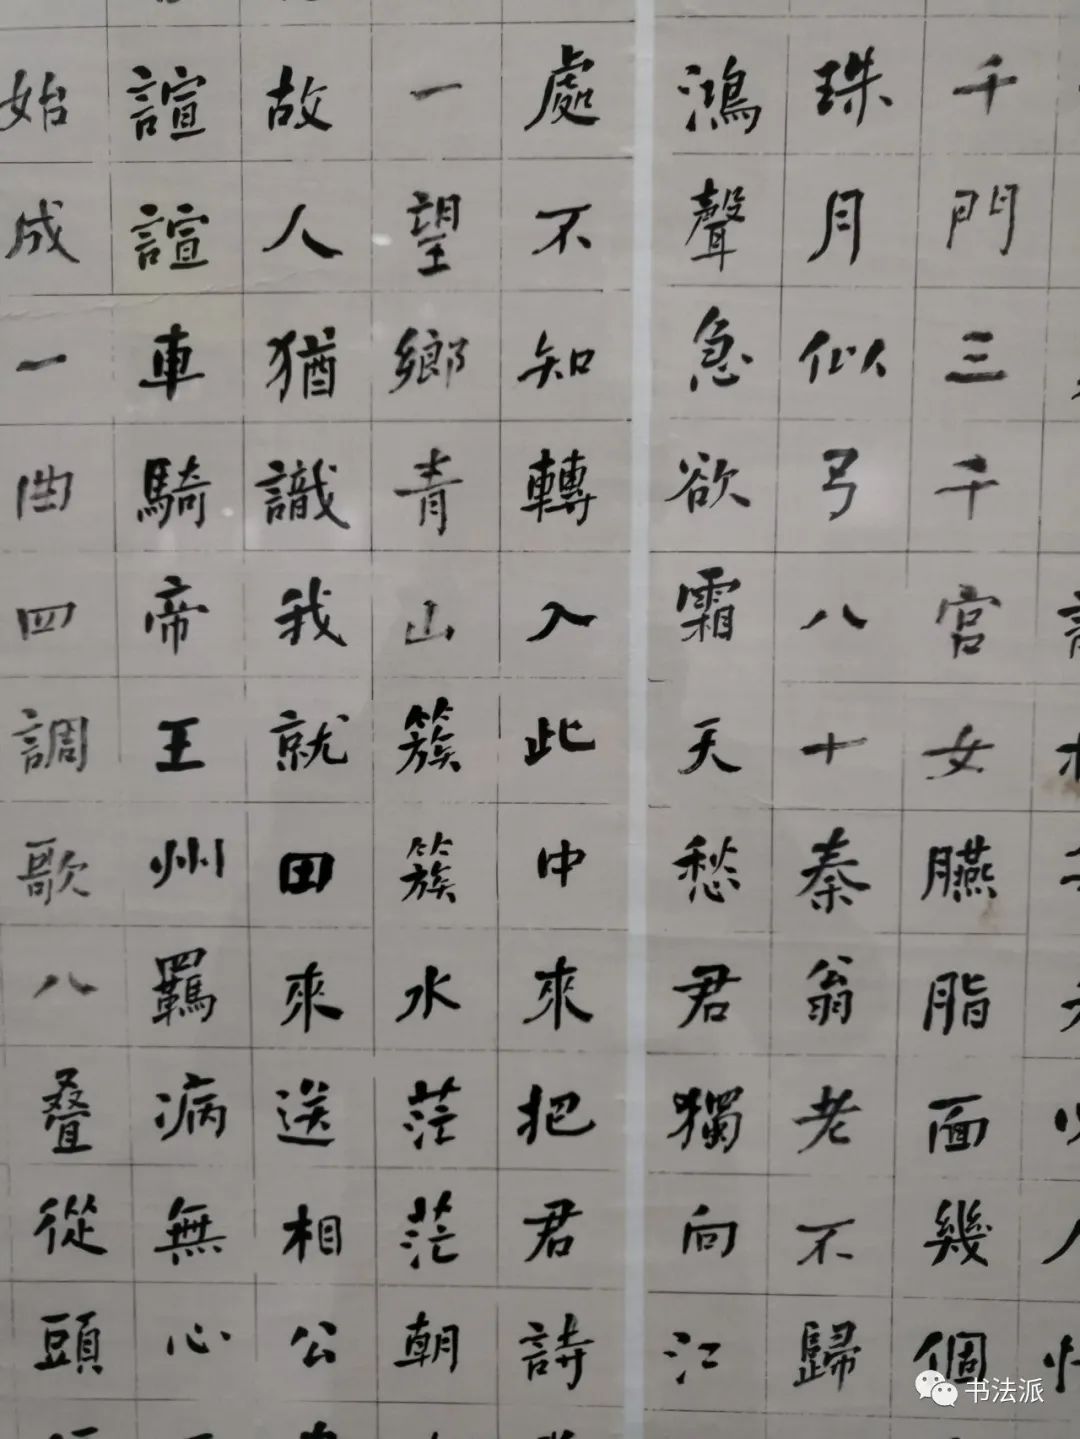 千門三千宮女臙脂面幾個
珠月似弓八十秦翁老不歸
鴻聲急欲霜天愁君獨向江
處不知轉入此中來把君詩
一望鄉青山簇簇水茫茫朝
故人猶識我就田來送相公
諠諠車騎帝王州羈病無心
始成一曲四調歌八叠從頭
书法派